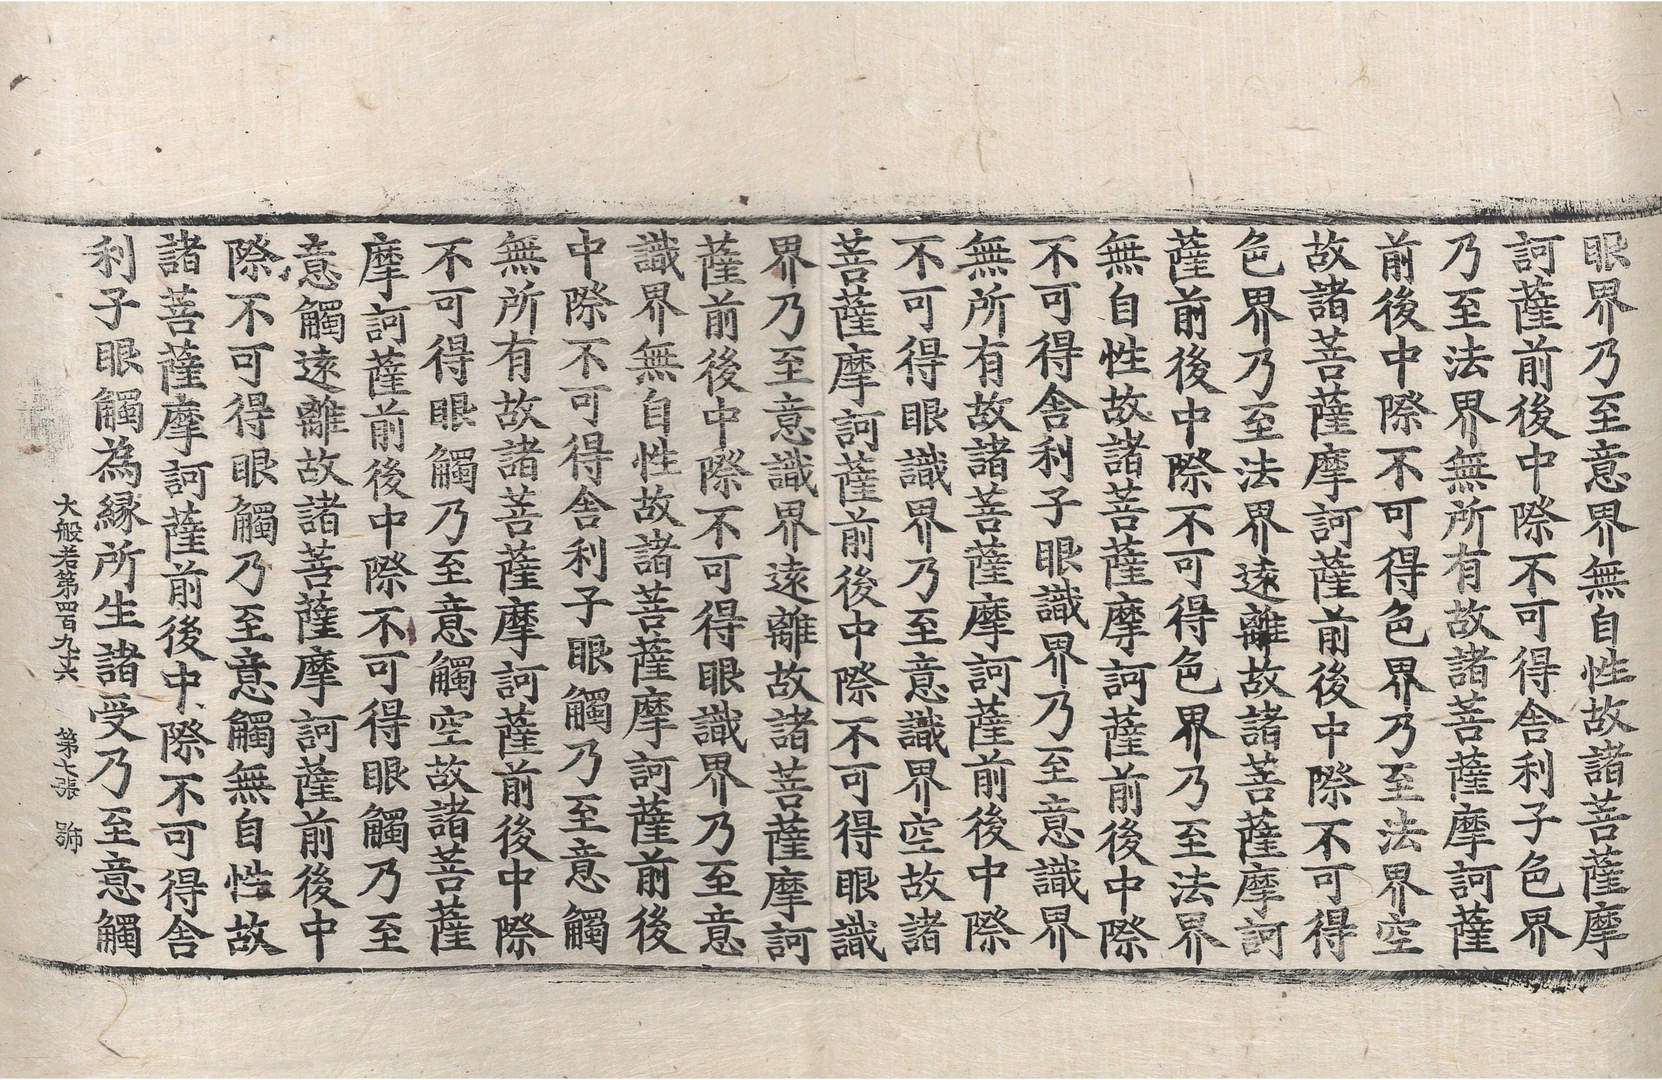 眼界乃至意界無自性故諸菩薩摩
訶薩前後中際不可得舍利子色界
乃至法界無所有故諸菩薩摩訶薩
前後中際不可得色界乃至法界空
故諸菩薩摩訶薩前後中際不可得
色界乃至法界遠離故諸菩薩摩訶
薩前後中際不可得色界乃至法界
無自性故諸菩薩摩訶薩前後中際
不可得舍利子眼識界乃至意識界
無所有故諸菩薩摩訶薩前後中際
不可得眼識界乃至意識界空故諸
菩薩摩訶薩前後中際不可得眼識
界乃至意識界遠離故諸菩薩摩訶
薩前後中際不可得眼識界乃至意
識界無自性故諸菩薩摩訶薩前後
中際不可得舍利子眼觸乃至意觸
無所有故諸菩薩摩訶薩前後中際
不可得眼觸乃至意觸空故諸菩薩
摩訶薩前後中際不可得眼觸乃至
意觸遠離故諸菩薩摩訶薩前後中
際不可得眼觸乃至意觸無自性故
諸菩薩摩訶薩前後中際不可得舍
利子眼觸為緣所生諸受乃至意觸
大般若第四百九十六 第七張 號